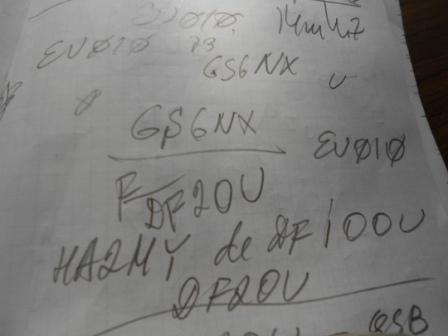 EU0I0 14mHz
EVØIØ 73
GS6NX
GS6NX
EVØIØ
DF20U
HA2MY de DF100U
DF20U
QSB